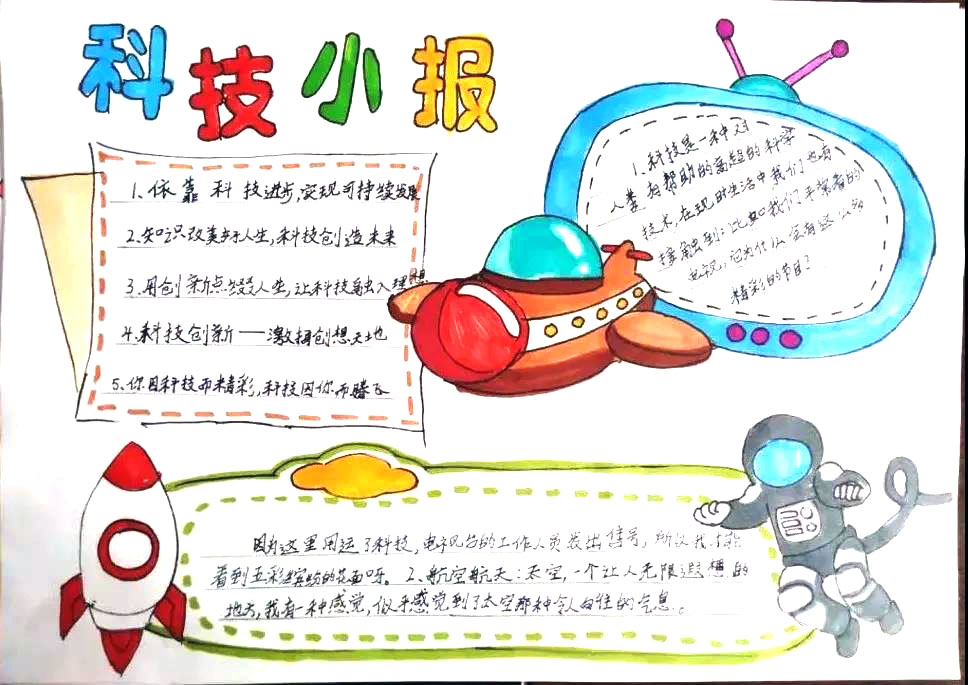 科技小报
1、依靠科技进步,实现可持续发展
2、知识改变人生,科技创造未来
3、用创新点缀人生,让科技融入理想
4、科技创新——激拥创想天地
5、你因科技而精彩,科技因你而腾飞
1、科技是一种对
人类有帮助的高超的科学
技术,在现时生活中我们也有
接触到:比如我们平常看的
电视,它为什么会有这么多
精彩的节目?
因为这里用运了科技,电视台的工作人员发出信号,所以我才能
看到五彩缤纷的花面呀。2、航空航天:太空,一个让人无限遐想的
地方,我有一种感觉,似乎感觉到了太空那种令人向往的气息。